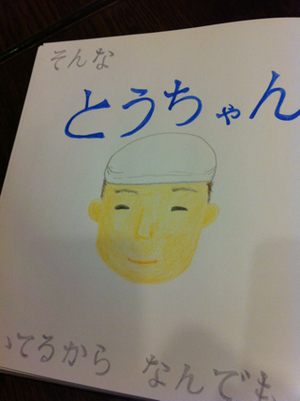 そんな
とうちゃん
いてるから なんでも